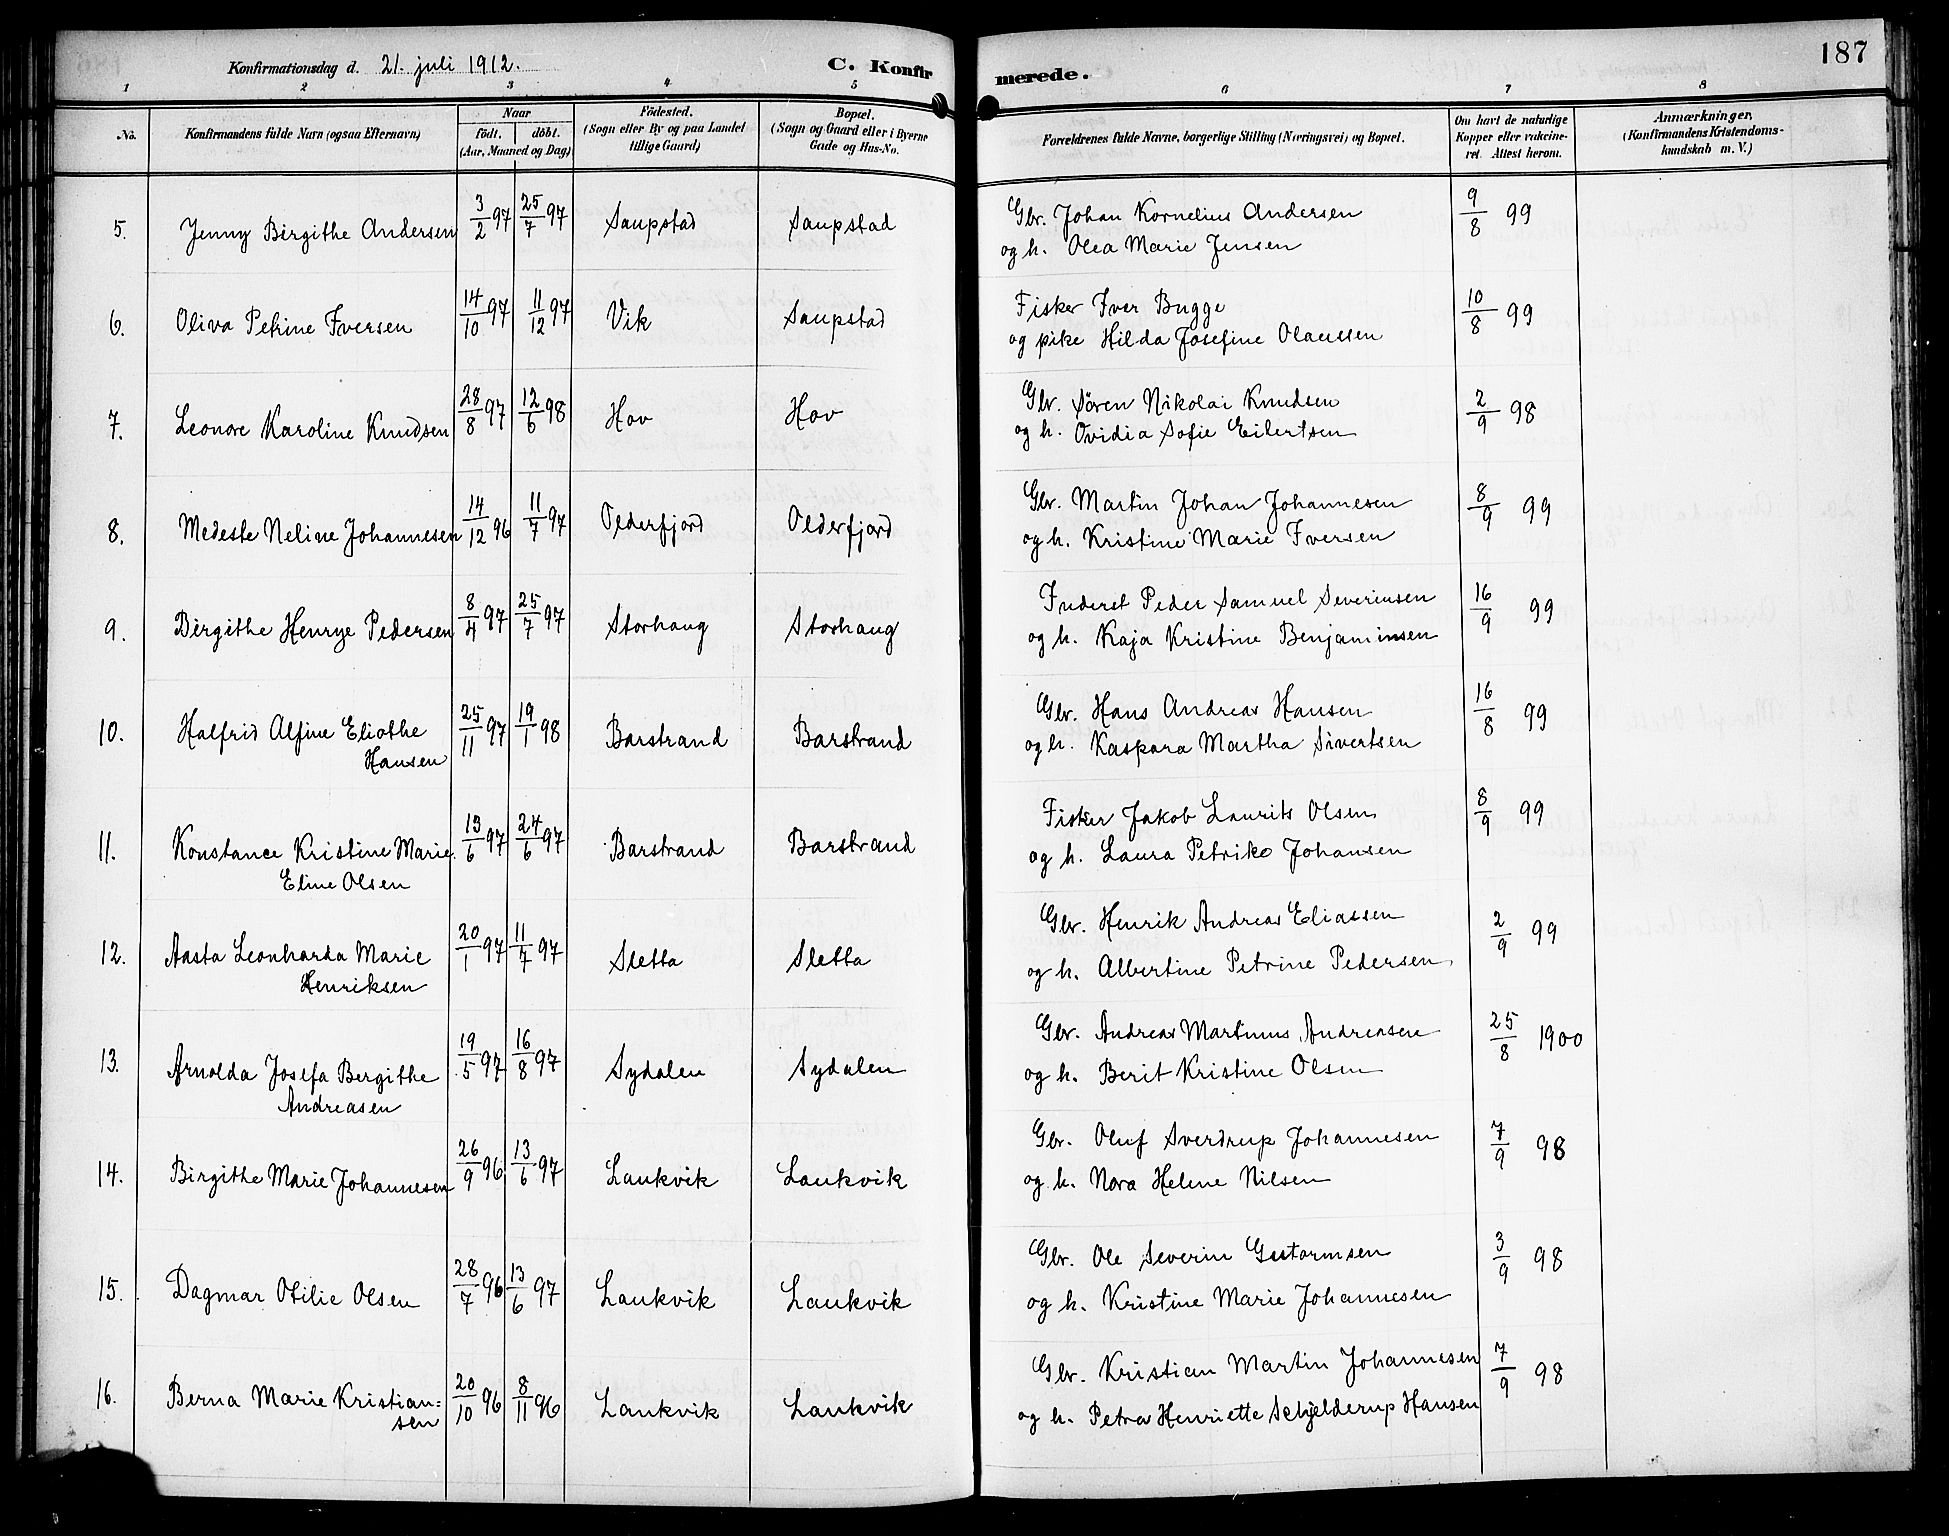 Konfirmationsdag d. 21. juli 1912.
C. Konfirmerede.
187
1 2 3 4 5 6 7 8
No.
Konfirmandens fulde Navn (ogsaa Efternavn)
Naar
födt. döbt.
(Aar, Maaned og Dag)
Födested.
(Sogn eller By og paa Landet
tillige Gaard)
Bopæl.
(Sogn og Gaard eller i Byerne
Gade og Hus-No.
Forældrenes fulde Navne, borgerlige Stilling (Næringsvei) og Bopæl.
Om havt de naturlige
Kopper eller vakcine-
ret. Attest herom.
Anmærkninger,
(Konfirmandens Kristendoms-
kundskab m. V.)
5. Jenny Birgithe Andersen 3/2 97 25/7 97 Saupstad Saupstad Gbr. Johan Kornelius Andersen 9/8 99
og h. Olea Marie Jensen
6. Oliva Petrine Iversen 14/10 97 11/12 97 Vik Saupstad Fisker Iver Bugge 10/8 99
og pike Hilda Josefine Olaussen
7. Leonore Karoline Knudsen 28/8 97 12/6 98 Hov Hov Gbr. Sören Nikolai Knudsen 2/9 98
og h. Ovidia Sofie Eilertsen
8. Medeste Neline Johannesen 14/12 96 11/7 97 Olderfjord Olderfjord Gbr. Martin Johan Johannesen 8/9 99
og h. Kristine Marie Iversen
9. Birgithe Henrye Pedersen 8/4 97 25/7 97 Storhaug Storhaug Inderst Peder Samuel Severinsen 16/9 99
og h. Kaja Kristine Benjaminsen
10. Halfrid Alfine Eliothe 25/11 97 19/1 98 Barstrand Barstrand Gbr. Hans Andreas Hansen 16/8 99
Hansen og h. Kaspara Martha Sivertsen
11. Konstance Kristine Marie 13/6 97 24/6 97 Barstrand Barstrand Fisker Jakob Laurits Olsen 8/9 99
Eline Olsen og h. Laura Petrike Johansen
12. Aasta Leonharda Marie 20/1 97 11/7 97 Sletta Sletta Gbr. Henrik Andreas Eliassen 2/9 99
Henriksen og h. Albertine Petrine Pedersen
13. Arnolda Josefa Bergithe 19/5 97 16/8 97 Sydalen Sydalen Gbr. Andreas Martinus Andreasen 25/8 1900
Andreasen og h. Berit Kristine Olsen
14. Birgithe Marie Johannesen 26/9 96 13/6 97 Laukvik Laukvik Gbr. Oluf Sverdrup Johannesen 7/9 98
og h. Nora Helene Nilsen
15. Dagmar Otilie Olsen 28/7 96 13/6 97 Laukvik Laukvik Gbr. Ole Severin Gstormsen 3/9 98
og h. Kristine Marie Johannesen
16. Berna Marie Kristian= 20/10 96 8/11 96 Laukvik Laukvik Gbr. Kristian Martin Johannesen 7/9 98
sen og h. Petra Henriette Schjelderup Hansen